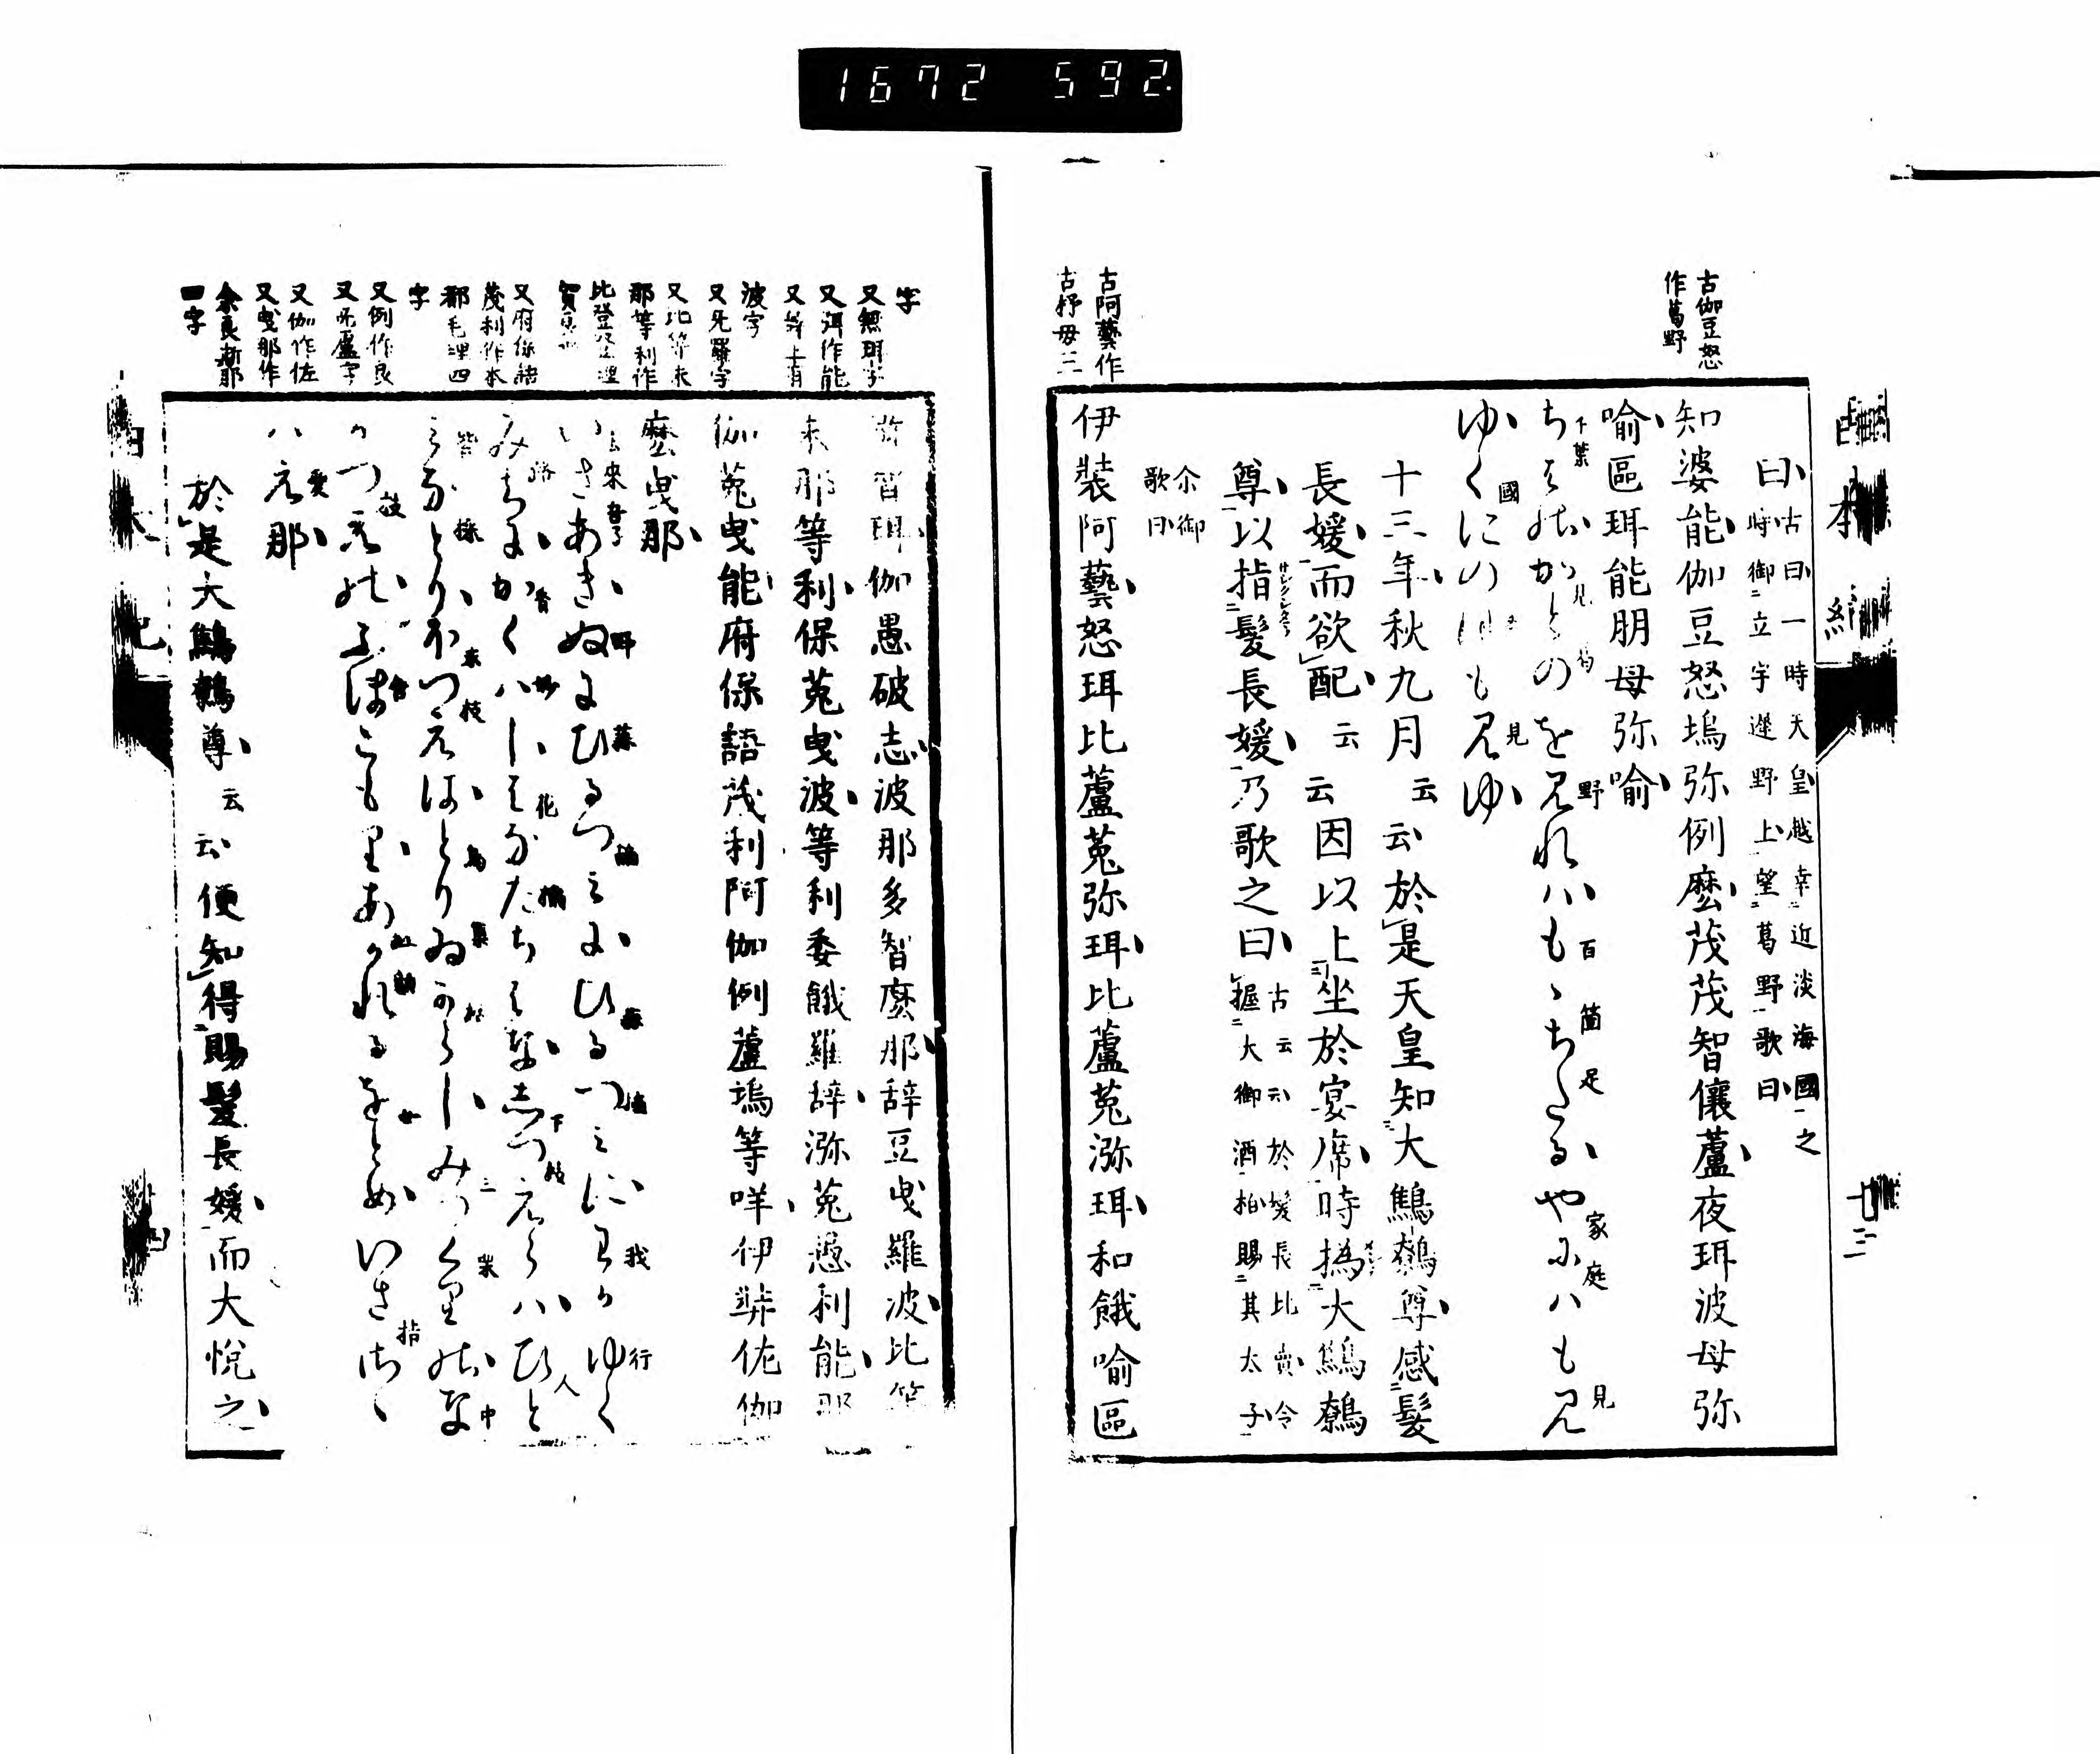 1672 592.
古伽豆怒
作葛野
曰古曰一時天皇越幸近淡海國之
時御立宇遅野上望葛野歌曰
知婆能伽豆怒塢弥例麼茂茂智儴蘆夜珥波母弥
喩區珥能朋母弥喩
ちはのかつのを見れハもゝちたるやにハも見
ゆくにのほも見ゆ
十三年秋九月云云於是天皇知大鷦鷯尊感髪
長媛而欲配云云因以上坐於宴席時撝大鷦鷯
尊以指髪長媛乃歌之曰古云云於髪長比賣令
握大御酒柏賜其太子
尒御
歌曰
古阿藝作
古杼母三
伊裝阿藝怒珥比蘆菟弥珥比蘆菟瀰珥和餓喩區
字
又無珥字
又洱作能
波字
又比等未
那等利作
又府保語
茂利作本
都毛理四
字
又例作良
又伽作佐
又曳那作
余良斯那
一字
智珥伽愚破志波那多智麼那辞豆曳羅波比等
未那等利保菟曳波等利委餓羅辞瀰菟愚利能那
伽菟曳能府保語茂利阿伽例蘆塢等咩伊弉佐伽
麼曳那
いさあきぬにひるつみにひるつみにわかゆく
みちにかくハしはなたちはなしつえらハひと
みなとりほつえはとりゐからしみつくりのな
かつえのふほこもりあかれるをとめいささく
ハえな
於是大鷦鷯尊云云便知得賜髪長媛而大悦之